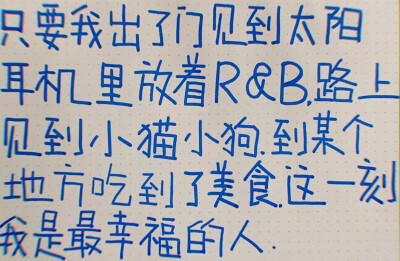 只要我出了门见到太阳
耳机里放着R&B.路上
见到小猫小狗.到某个
地方吃到了美食.这一刻
我是最幸福的人.